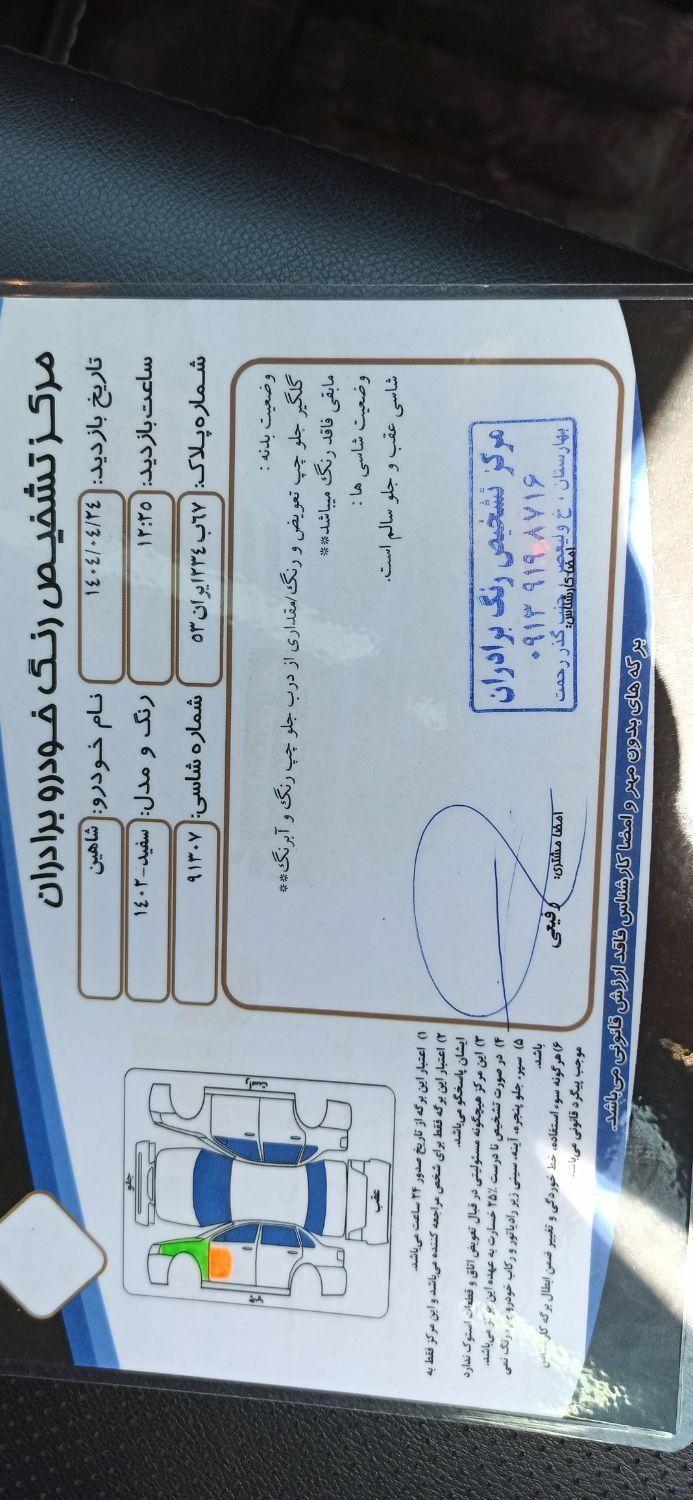 مرکز تشخیص رنگ خودرو برادران
تاریخ بازدید: ١٤٠٤/٠٤/٢٤ نام خودرو: شاهین
ساعت بازدید: ١٢:٢٥ رنگ و مدل: سفید-١٤٠٢
شماره پلاک: ٦٧ب٢٣٤ایران ٥٣ شماره شاسی: ٩١٣٠٧
وضعیت بدنه :
گلگیر جلو چپ تعویض و رنگ/مقداری از درب جلو چپ رنگ و آبرنگ**
مابقی فاقد رنگ میباشد**
وضعیت شاسی ها :
شاسی عقب و جلو سالم است.
مرکز تشخیص رنگ برادران
٠٩١٣ ٩١٩ ٨٧١٦
بهارستان ، خ ولیعصر، جنب گذر رحمت
امضا کارشناس:
امضا مشتری:
رفیعی
جلو
عقب
١) اعتبار این برگه از تاریخ صدور ٢٤ ساعت می‌باشد.
٢) اعتبار این برگه فقط برای شخص مراجعه کننده می‌باشد و این مرکز فقط به
ایشان پاسخگو می‌باشد.
٣) این مرکز هیچگونه مسئولیتی در قبال تعویض اتاق و قطعات استوک ندارد
٤) در صورت تشخیص نادرست ٢٥٪ خسارت به عهده این مرکز می‌باشد.
٥) سپر، جلو پنجره، آینه، سینی زیر رادیاتور و رکاب خودرو رنگ نمی
باشد.
٦) هرگونه سوء استفاده، خط خوردگی و تغییر ضمن ابطال برگه کارشناس
موجب پیگرد قانونی می‌باشد.
برگه های بدون مهر و امضا کارشناس فاقد ارزش قانونی می‌باشد.